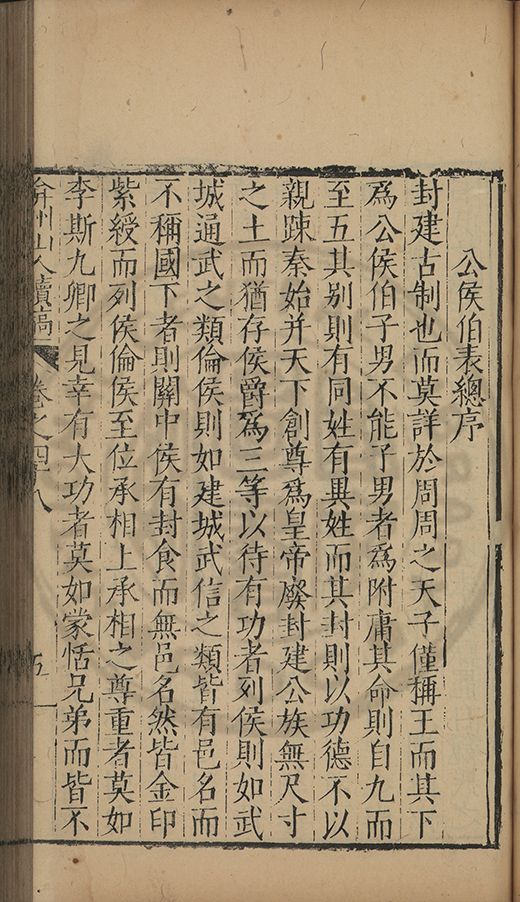 公侯伯表總序
封建古制也而莫詳於周周之天子僅稱王而其下
爲公侯伯子男不能子男者爲附庸其命則自九而
至五其别則有同姓有異姓而其封則以功德不以
親踈秦始并天下創尊爲皇帝廢封建公族無尺寸
之土而猶存侯爵爲三等以待有功者列侯則如武
城通武之類倫侯則如建城武信之類皆有邑名而
不稱國下者則關中侯有封食而無邑名然皆金印
紫綬而列侯倫侯至位承相上承相之尊重者莫如
李斯九卿之見幸有大功者莫如蒙恬兄弟而皆不
弇州山人續稿 卷之四十八 五